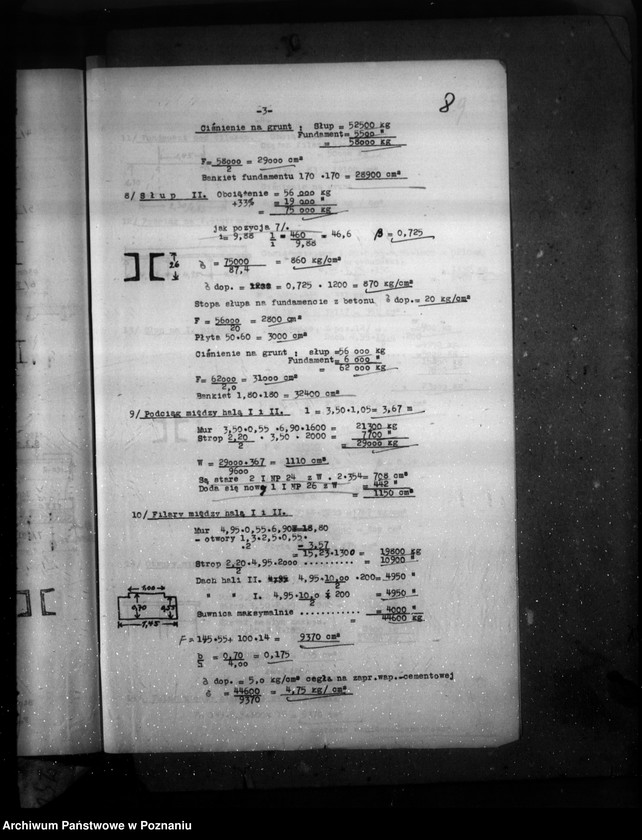 8
-3-
Ciśnienie na grunt : Słup = 52500 kg
Fundament= 5500 "
= 58000 kg
F= 58000 = 29000 cm²
2
Bankiet fundamentu 170 .170 = 28900 cm²
8/ S ł u p II. Obciążenie = 56 000 kg
+33% = 19 000 "
= 75 000 kg
jak pozycja 7/.
i= 9,88 l = 460 = 46,6 β = 0,725
i 9,88
26
= 75000 = 860 kg/cm²
87,4
dop. = 0,725 . 1200 = 870 kg/cm²
Stopa słupa na fundamencie z betonu dop.= 20 kg/cm²
F = 56000 = 2800 cm²
20
Płyta 50.60 = 3000 cm²
Ciśnienie na grunt : słup =56 000 kg
Fundament= 6 000 "
= 62 000 kg
F= 62000 = 31000 cm²
2,0
Bankiet 1,80.180 = 32400 cm²
9/ Podciąg między halą I i II. l = 3,50.1,05= 3,67 m
Mur 3,50.0,55 .6,90.1600 = 21300 kg
Strop 2,20 . 3,50 . 2000 = 7700 "
2 = 29000 kg
W = 29000.367 = 1110 cm³
9600
Są stare 2 I NP 24 z W . 2.354= 708 cm³
Doda się nowy 1 I NP 26 z W = 442 "
= 1150 cm³
10/ Filary między halą I i II.
Mur 4,95.0,55.6,90=18,80
- otwory 1,3.2,5.0,55.
.2 = 3,57
= 15,23.1300 = 19800 kg
Strop 2,20.4,95.2000 .......... = 10900 "
2
Dach hali II. 4,95.10,00 .200= 4950 "
2
" " I. 4,95.10,0 . 200 = 4950 "
2
Suwnica maksymalnie ........... = 4000 "
= 44600 kg
1,00
0,70 0,55
1,45
F = 145.55+ 100.14 = 9370 cm²
b = 0,70 = 0,175
h 4,00
dop. = 5,0 kg/cm² cegła na zapr.wap.-cementowej
= 44600 = 4,75 kg/ cm²
9370
Archiwum Państwowe w Poznaniu